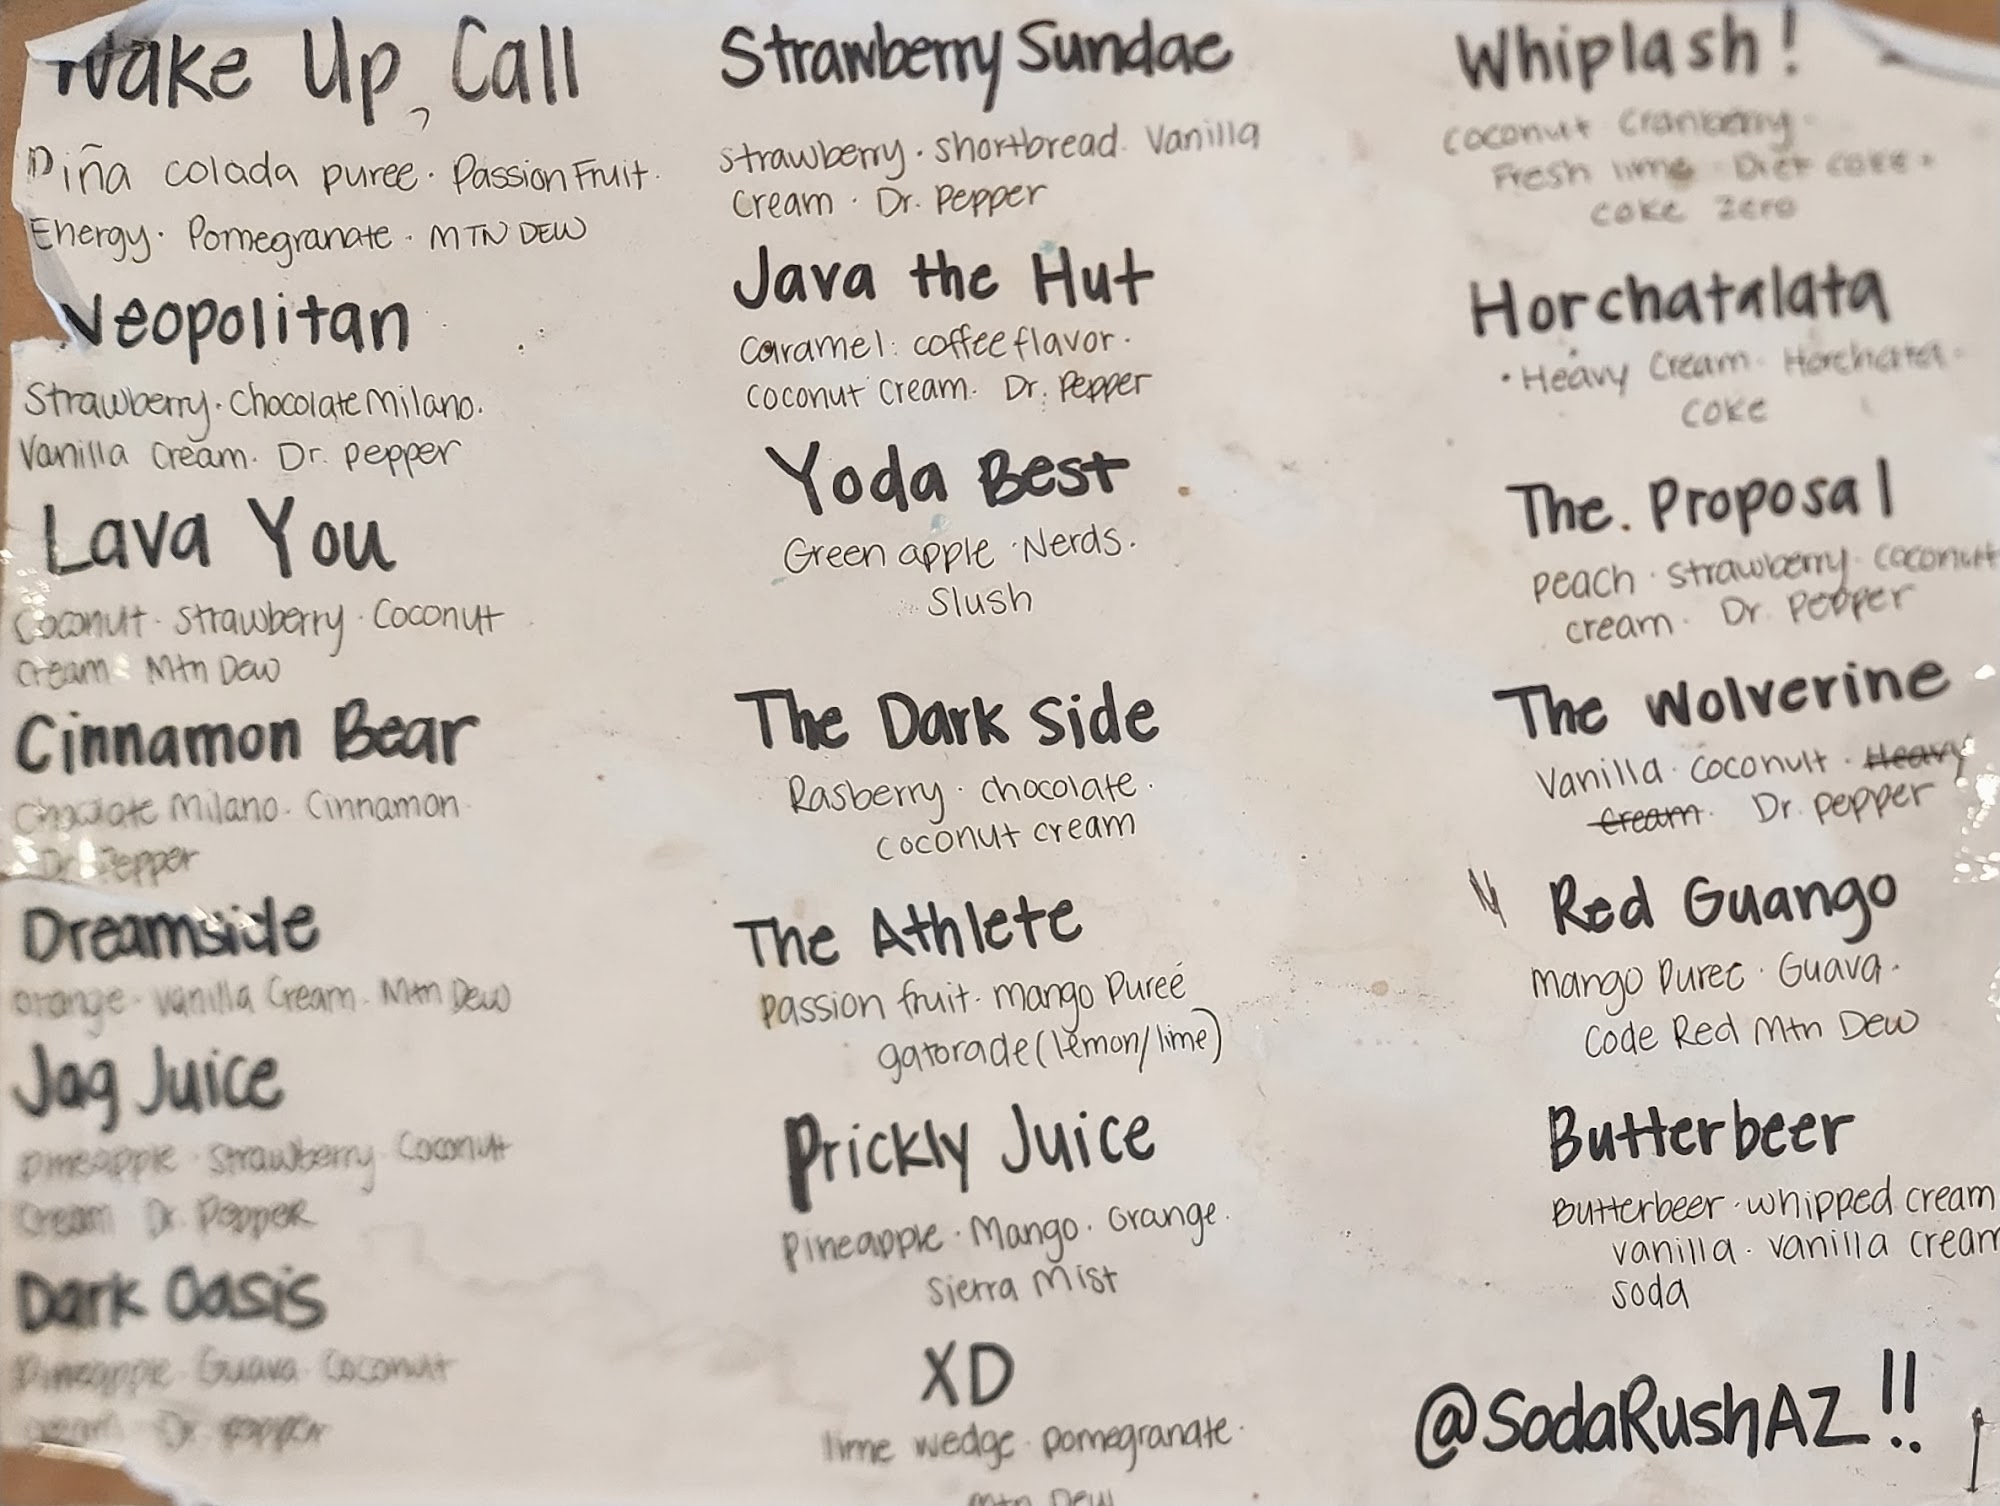 Wake Up Call
Piña colada puree · Passion Fruit ·
Energy · Pomegranate · MTN DEW
Neopolitan
Strawberry · Chocolate Milano ·
Vanilla Cream · Dr. Pepper
Lava You
Coconut · Strawberry · Coconut
Cream · Mtn Dew
Cinnamon Bear
Chocolate Milano · Cinnamon
Dr. Pepper
Dreamside
Orange · Vanilla Cream · Mtn Dew
Jag Juice
pineapple · Strawberry · Coconut
Cream Dr. Pepper
Dark Oasis
Pineapple · Guava · Coconut
cream Dr. pepper
Strawberry Sundae
Strawberry · shortbread · Vanilla
Cream · Dr. Pepper
Java the Hut
Caramel · coffee flavor ·
coconut cream · Dr. Pepper
Yoda Best
Green apple · Nerds ·
Slush
The Dark Side
Rasberry · chocolate ·
coconut cream
The Athlete
passion fruit · mango Pureé
gatorade (lemon/lime)
Prickly Juice
Pineapple · Mango · Orange ·
Sierra Mist
XD
lime wedge · pomegranate ·
mtn Dew
Whiplash!
coconut Cranberry ·
Fresh lime · Diet coke ·
coke zero
Horchatalata
· Heavy Cream · Horchata ·
coke
The Proposal
peach · strawberry · coconut
cream · Dr. Pepper
The Wolverine
Vanilla · coconut · Heavy
Cream · Dr. pepper
Red Guango
mango Puree · Guava ·
Code Red Mtn Dew
Butterbeer
Butterbeer · whipped cream
vanilla · vanilla cream
soda
@SodaRushAZ!!